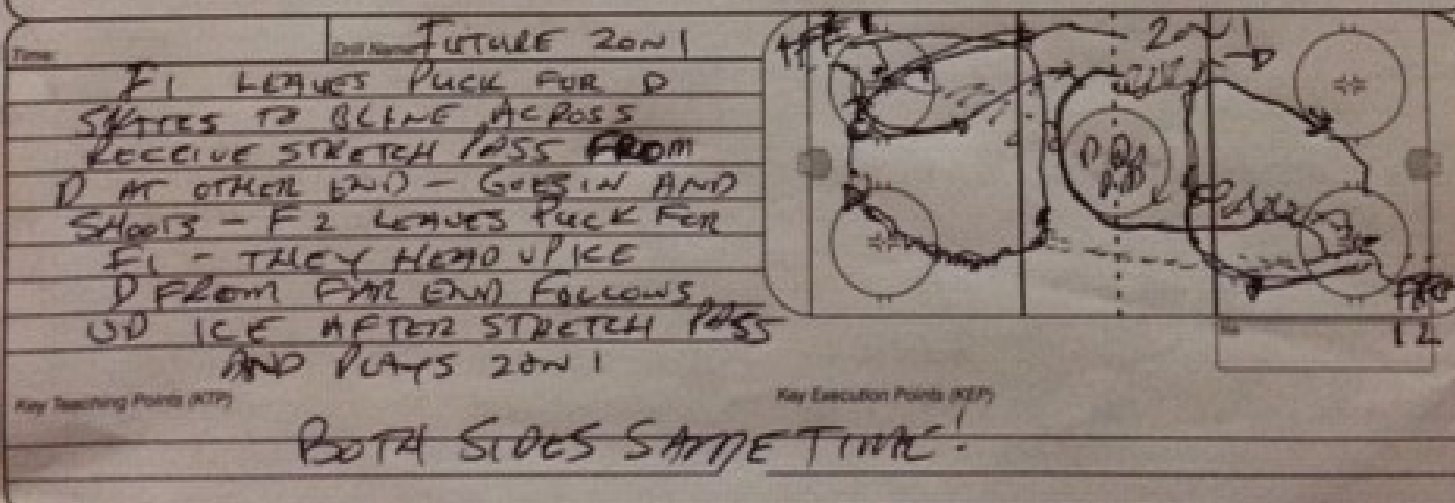 Time: Drill Name: FUTURE 2ON1
F1 LEAVES PUCK FOR D
SKATES TO BLINE ACROSS
RECEIVE STRETCH PASS FROM
D AT OTHER END - GOES IN AND
SHOOTS - F2 LEAVES PUCK FOR
F1 - THEY HEAD UP ICE
D FROM FAR END FOLLOWS
UP ICE AFTER STRETCH PASS
AND PLAYS 2ON1
2ON1
D
Key Teaching Points (KTP) Key Execution Points (KEP)
BOTH SIDES SAME TIME!